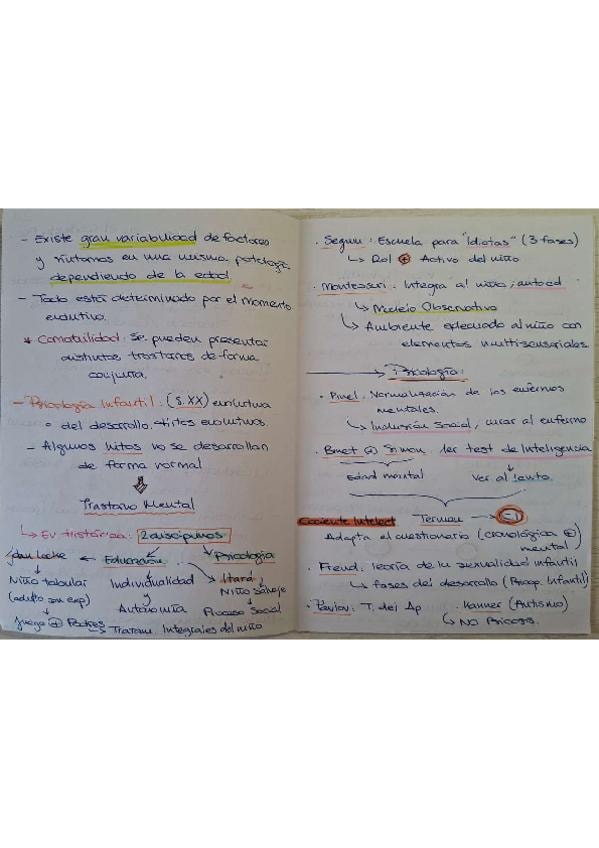 - Existe gran variabilidad de factores
y síntomas en una misma patología
dependiendo de la edad
- Todo está determinado por el momento
evolutivo.
* Comorbilidad: Se pueden presentar
distintos trastornos de forma
conjunta.
- Psicología Infantil: (S.XX) evolutiva
o del desarrollo. hitos evolutivos.
- Algunos hitos no se desarrollan
de forma normal
Trastorno Mental
↳ Ev. Histórica: 2 disciplinas
John Locke ← Educación Psicología
Niño tabular
(adulto sin exp)
Juego + Padres
Individualidad
y
Autonomía
→ Itard:
Niño Salvaje
Proceso Social
→ Tratam. Integrales del niño
· Seguin: Escuela para "Idiotas" (3 fases)
↳ Rol + Activo del niño
· Montessori: Integra al niño;
↳ Modelo Observativo
↳ Ambiente adecuado al niño con
elementos multisensoriales.
→ Psicología:
· Pinel: Normalización de los enfermos
mentales.
↳ Inclusión Social, curar al enfermo
· Binet + Simon: 1er test de Inteligencia
Edad mental Ver al lento.
Cociente Intelect Terman → CI
Adapta el cuestionario (cronológica +
mental)
· Freud: Teoría de la sexualidad infantil
↳ fases del desarrollo (Psicop. Infantil)
· Pavlov: T. del Ap · Kanner (Autismo)
↳ NO Psicosis.